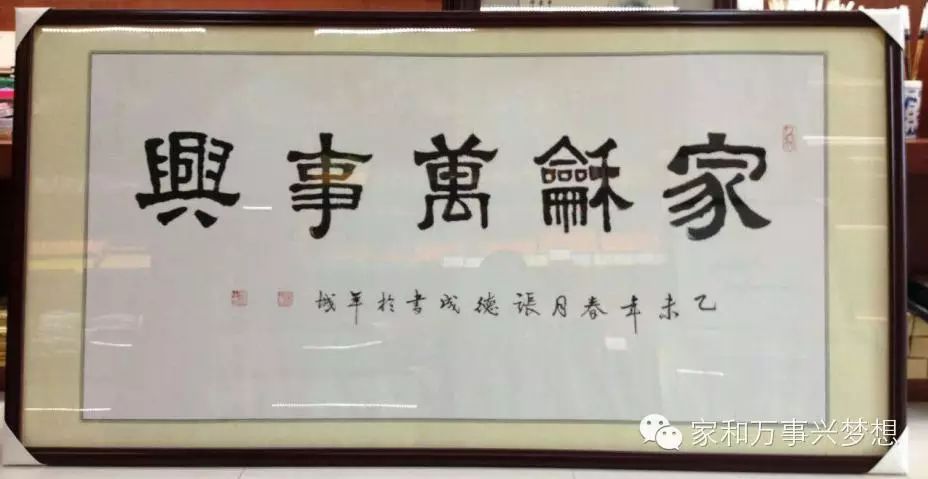 家龢萬事興
乙未年春月張德成書於羊城
家和万事兴梦想